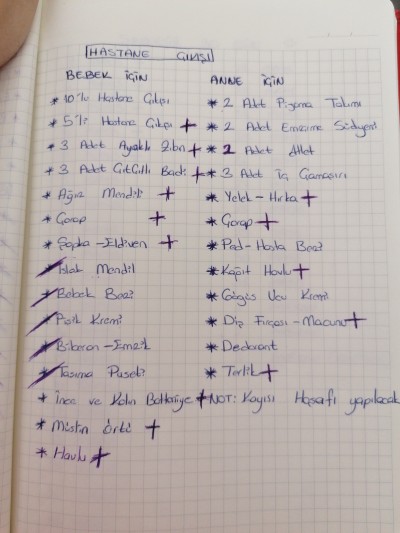 HASTANE ÇIKIŞI
BEBEK İÇİN
* 10'lu Hastane Çıkışı
* 5'li Hastane Çıkışı +
* 3 Adet Ayaklı Zıbın +
* 3 Adet Çıtçıtlı Badi +
* Ağız Mendili +
* Çorap +
* Şapka - Eldiven +
* Islak Mendil
* Bebek Bezi
* Pişik Kremi
* Biberon - Emzik
* Taşıma Puseti
* İnce ve Kalın Battaniye +
* Müslin Örtü +
* Havlu +
ANNE İÇİN
* 2 Adet Pijama Takımı
* 2 Adet Emzirme Sütyeni
* 2 Adet Atlet
* 3 Adet İç Çamaşırı
* Yelek - Hırka +
* Çorap +
* Ped - Hasta Bezi
* Kağıt Havlu +
* Göğüs Ucu Kremi
* Diş Fırçası - Macunu +
* Deodorant
* Terlik +
NOT: Kayısı Hoşafı yapılacak